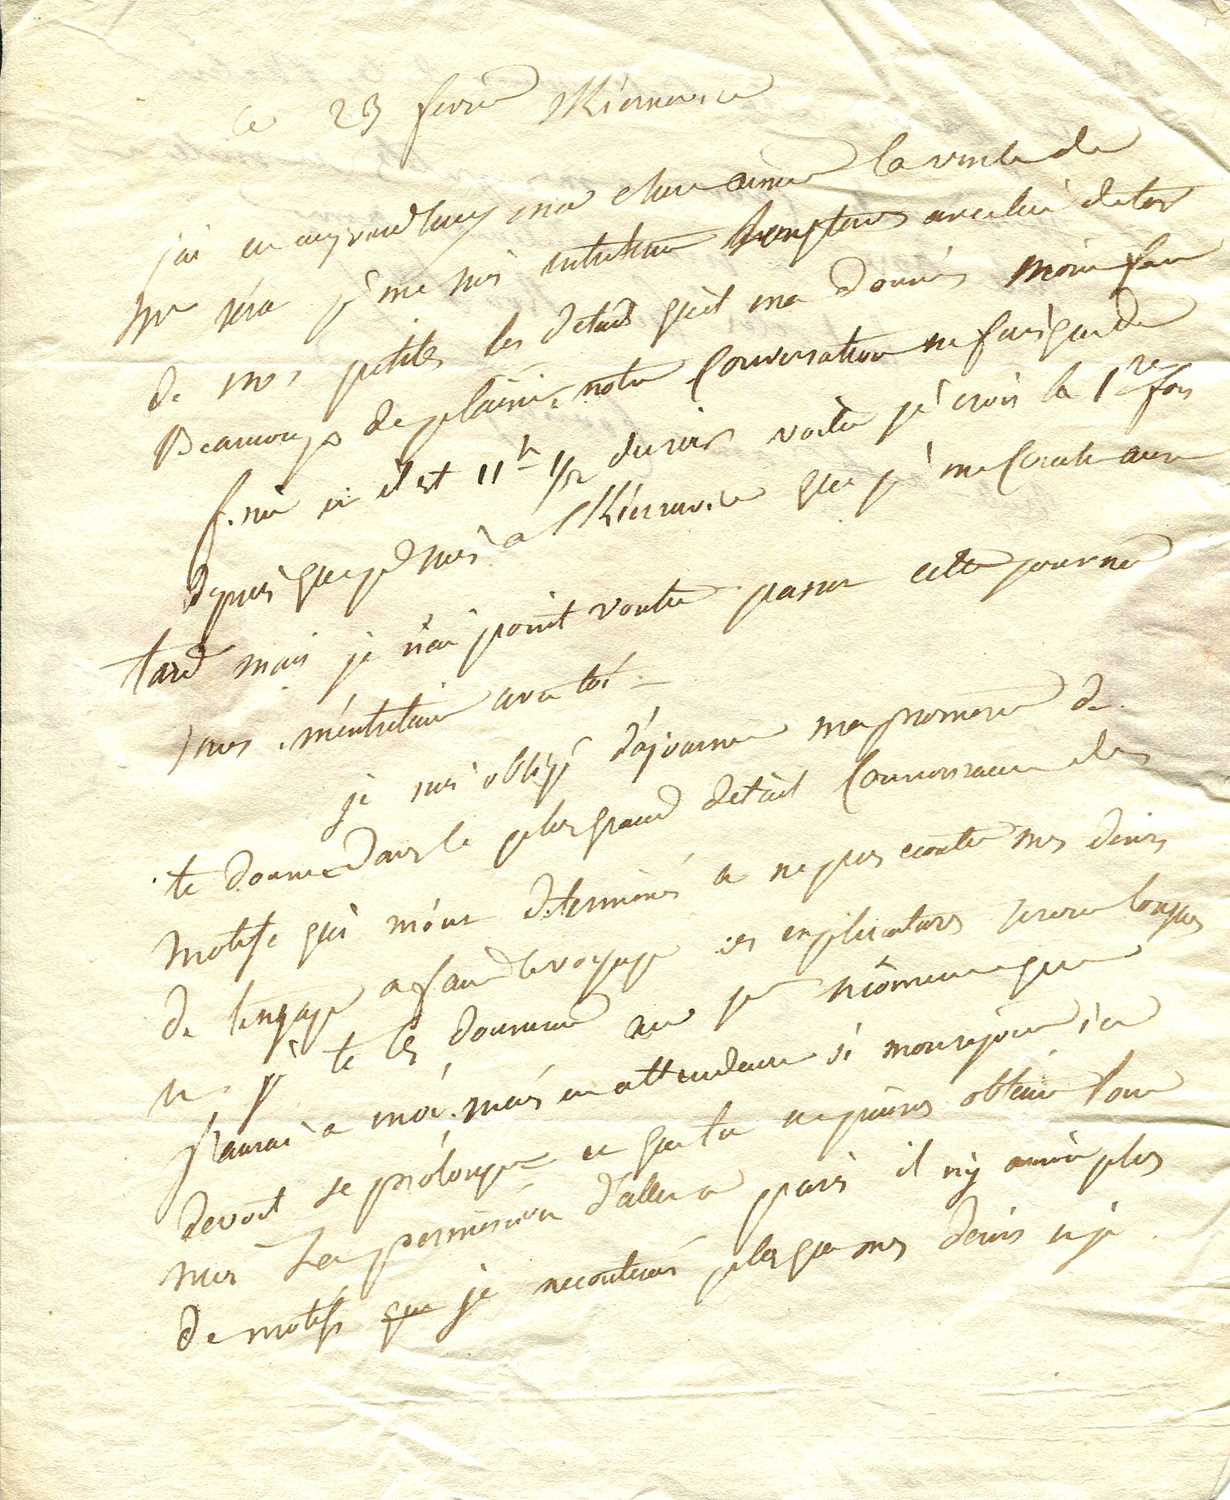 ce 23 fevrier Skiernevice
j'ai eu aujourdhuy ma chere amie la visite de
je me suis entretenu longtems avec lui de toi
de nos petites les details qu'il m'a donnés m'ont fait
Beaucoup de plaisir, notre Conversation ne fais que de
finir et il est 11h 1/2 du soir voila je crois la 1re fois
depuis que je suis a Skiernevice que je me Couche aussi
tard mais je n'ai point voulu passer cette journée
sans m'entretenir avec toi —
je suis obligé d'ajourner ma promesse de
te donner dans le plus grand detail Connoissance des
motifs qui m'ont determinés a ne pas ecouter mes desirs
de t'engager a faire le voyage ces explications seroient longues
et je te les donnerai
a moi. mais en attendant si mon sejour ici
devoit se prolonger et que tu ne puisses obtenir pour
moi La permission d'aller a paris il n'y auroit plus
de motifs que je n'ecouterois plus que mes desirs et je